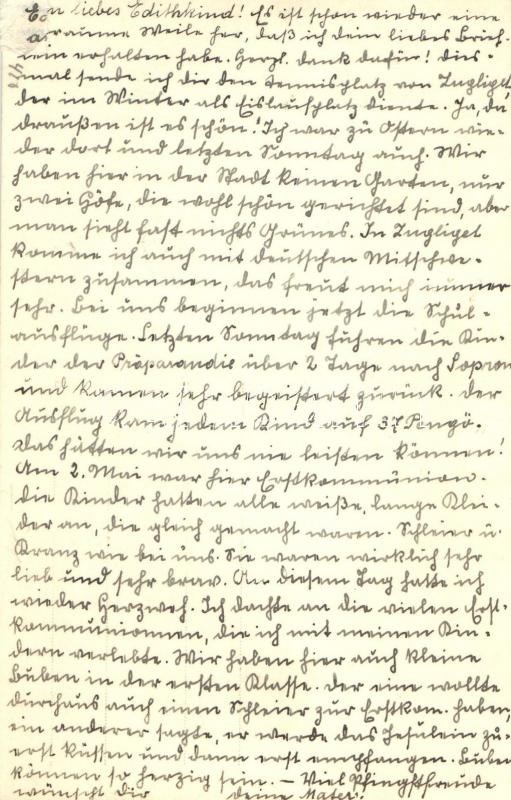 mein liebes Edithkind! Es ist schon wieder eine
geraume Weile her, daß ich dein liebes Brief-
lein erhalten habe. Herzl. dank dafür! Dies-
mal sende ich dir den Tennisplatz von Zugliget,
der im Winter als Eislaufplatz diente. Ja, da
draußen ist es schön! Ich war zu Ostern wie-
der dort und letzten Sonntag auch. Wir
haben hier in der Stadt keinen Garten, nur
zwei Höfe, die wohl schön gerichtet sind, aber
man sieht fast nichts Grünes. In Zugliget
komme ich auch mit deutschen Mitschwe-
stern zusammen, das freut mich immer
sehr. Bei uns beginnen jetzt die Schul-
ausflüge. Letzten Sonntag fuhren die Kin-
der der Präparandie über 2 Tage nach Sopron
und kamen sehr begeistert zurück. Der
Ausflug kam jedem Kind auf 37 Pengö.
Das hätten wir uns nie leisten können!
Am 2. Mai war hier Erstkommunion.
Die Kinder hatten alle weiße, lange Klei-
der an, die gleich gemacht waren. Schleier u.
Kranz wie bei uns. Sie waren wirklich sehr
lieb und sehr brav. An diesem Tag hatte ich
wieder Herzweh. Ich dachte an die vielen Erst-
kommunionen, die ich mit meinen Kin-
dern verlebte. Wir haben hier auch kleine
Buben in der ersten Klasse. Der eine wollte
durchaus auch einen Schleier zur Erstkom. haben,
ein anderer sagte, er werde das Jesulein zu-
erst küssen und dann erst empfangen. Buben
können so herzig sein. – Viel Pfingstfreude
wünscht dir deine Mater.